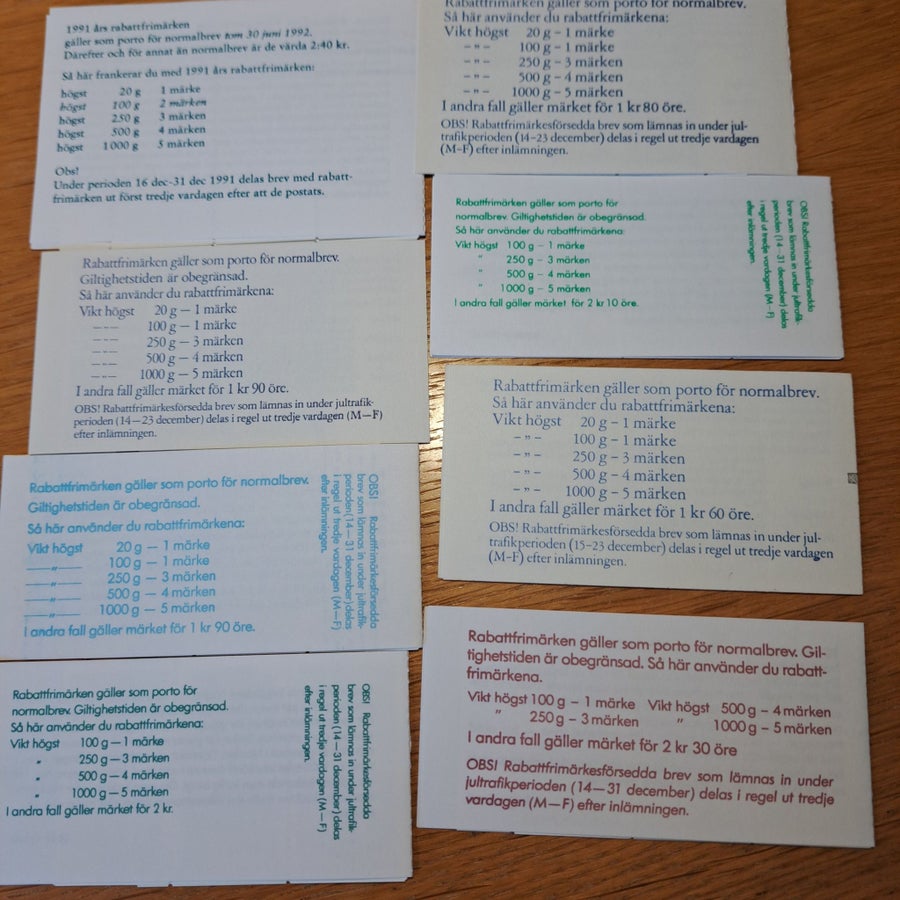 1991 års rabattfrimärken
gäller som porto för normalbrev tom 30 juni 1992.
Därefter och för annat än normalbrev är de värda 2:40 kr.
Så här frankerar du med 1991 års rabattfrimärken:
högst 20 g 1 märke
högst 100 g 2 märken
högst 250 g 3 märken
högst 500 g 4 märken
högst 1000 g 5 märken
Obs!
Under perioden 16 dec-31 dec 1991 delas brev med rabatt-
frimärken ut först tredje vardagen efter att de postats.
Rabattfrimärken gäller som porto för normalbrev.
Så här använder du rabattfrimärkena:
Vikt högst 20 g – 1 märke
– " – 100 g – 1 märke
– " – 250 g – 3 märken
– " – 500 g – 4 märken
– " – 1000 g – 5 märken
I andra fall gäller märket för 1 kr 80 öre.
OBS! Rabattfrimärkesförsedda brev som lämnas in under jul-
trafikperioden (14–23 december) delas i regel ut tredje vardagen
(M–F) efter inlämningen.
Rabattfrimärken gäller som porto för
normalbrev. Giltighetstiden är obegränsad.
Så här använder du rabattfrimärkena:
Vikt högst 100 g – 1 märke
" 250 g – 3 märken
" 500 g – 4 märken
" 1000 g – 5 märken
I andra fall gäller märket för 2 kr 10 öre.
OBS! Rabattfrimärkesförsedda
brev som lämnas in under jultrafik-
perioden (14–31 december) delas
i regel ut tredje vardagen (M–F)
efter inlämningen.
Rabattfrimärken gäller som porto för normalbrev.
Giltighetstiden är obegränsad.
Så här använder du rabattfrimärkena:
Vikt högst 20 g — 1 märke
—"— 100 g — 1 märke
—"— 250 g — 3 märken
—"— 500 g — 4 märken
—"— 1000 g — 5 märken
I andra fall gäller märket för 1 kr 90 öre.
OBS! Rabattfrimärkesförsedda brev som lämnas in under jultrafik-
perioden (14—23 december) delas i regel ut tredje vardagen (M—F)
efter inlämningen.
Rabattfrimärken gäller som porto för normalbrev.
Så här använder du rabattfrimärkena:
Vikt högst 20 g – 1 märke
– " – 100 g – 1 märke
– " – 250 g – 3 märken
– " – 500 g – 4 märken
– " – 1000 g – 5 märken
I andra fall gäller märket för 1 kr 60 öre.
OBS! Rabattfrimärkesförsedda brev som lämnas in under jul-
trafikperioden (15–23 december) delas i regel ut tredje vardagen
(M–F) efter inlämningen.
Rabattfrimärken gäller som porto för normalbrev.
Giltighetstiden är obegränsad.
Så här använder du rabattfrimärkena:
Vikt högst 20 g — 1 märke
—"— 100 g — 1 märke
—"— 250 g — 3 märken
—"— 500 g — 4 märken
—"— 1000 g — 5 märken
I andra fall gäller märket för 1 kr 90 öre.
OBS! Rabattfrimärkesförsedda
brev som lämnas in under jultrafik-
perioden(14—31 december)delas
i regel ut tredje vardagen (M—F)
efter inlämningen.
Rabattfrimärken gäller som porto för normalbrev. Gil-
tighetstiden är obegränsad. Så här använder du rabatt-
frimärkena.
Vikt högst 100 g – 1 märke Vikt högst 500 g – 4 märken
" 250 g – 3 märken " 1000 g – 5 märken
I andra fall gäller märket för 2 kr 30 öre
OBS! Rabattfrimärkesförsedda brev som lämnas in under
jultrafikperioden (14—31 december) delas i regel ut tredje
vardagen (M—F) efter inlämningen.
Rabattfrimärken gäller som porto för
normalbrev. Giltighetstiden är obegränsad.
Så här använder du rabattfrimärkena:
Vikt högst 100 g — 1 märke
" 250 g — 3 märken
" 500 g — 4 märken
" 1000 g — 5 märken
I andra fall gäller märket för 2 kr.
OBS! Rabattfrimärkesförsedda
brev som lämnas in under jultrafik-
perioden (14—31 december) delas
i regel ut tredje vardagen (M—F)
efter inlämningen.